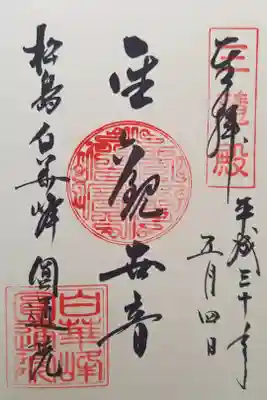 三慧殿
奉拝
平成三十年
五月四日
聖観世音
松島白華峰圓通院
白華峰
圓通院